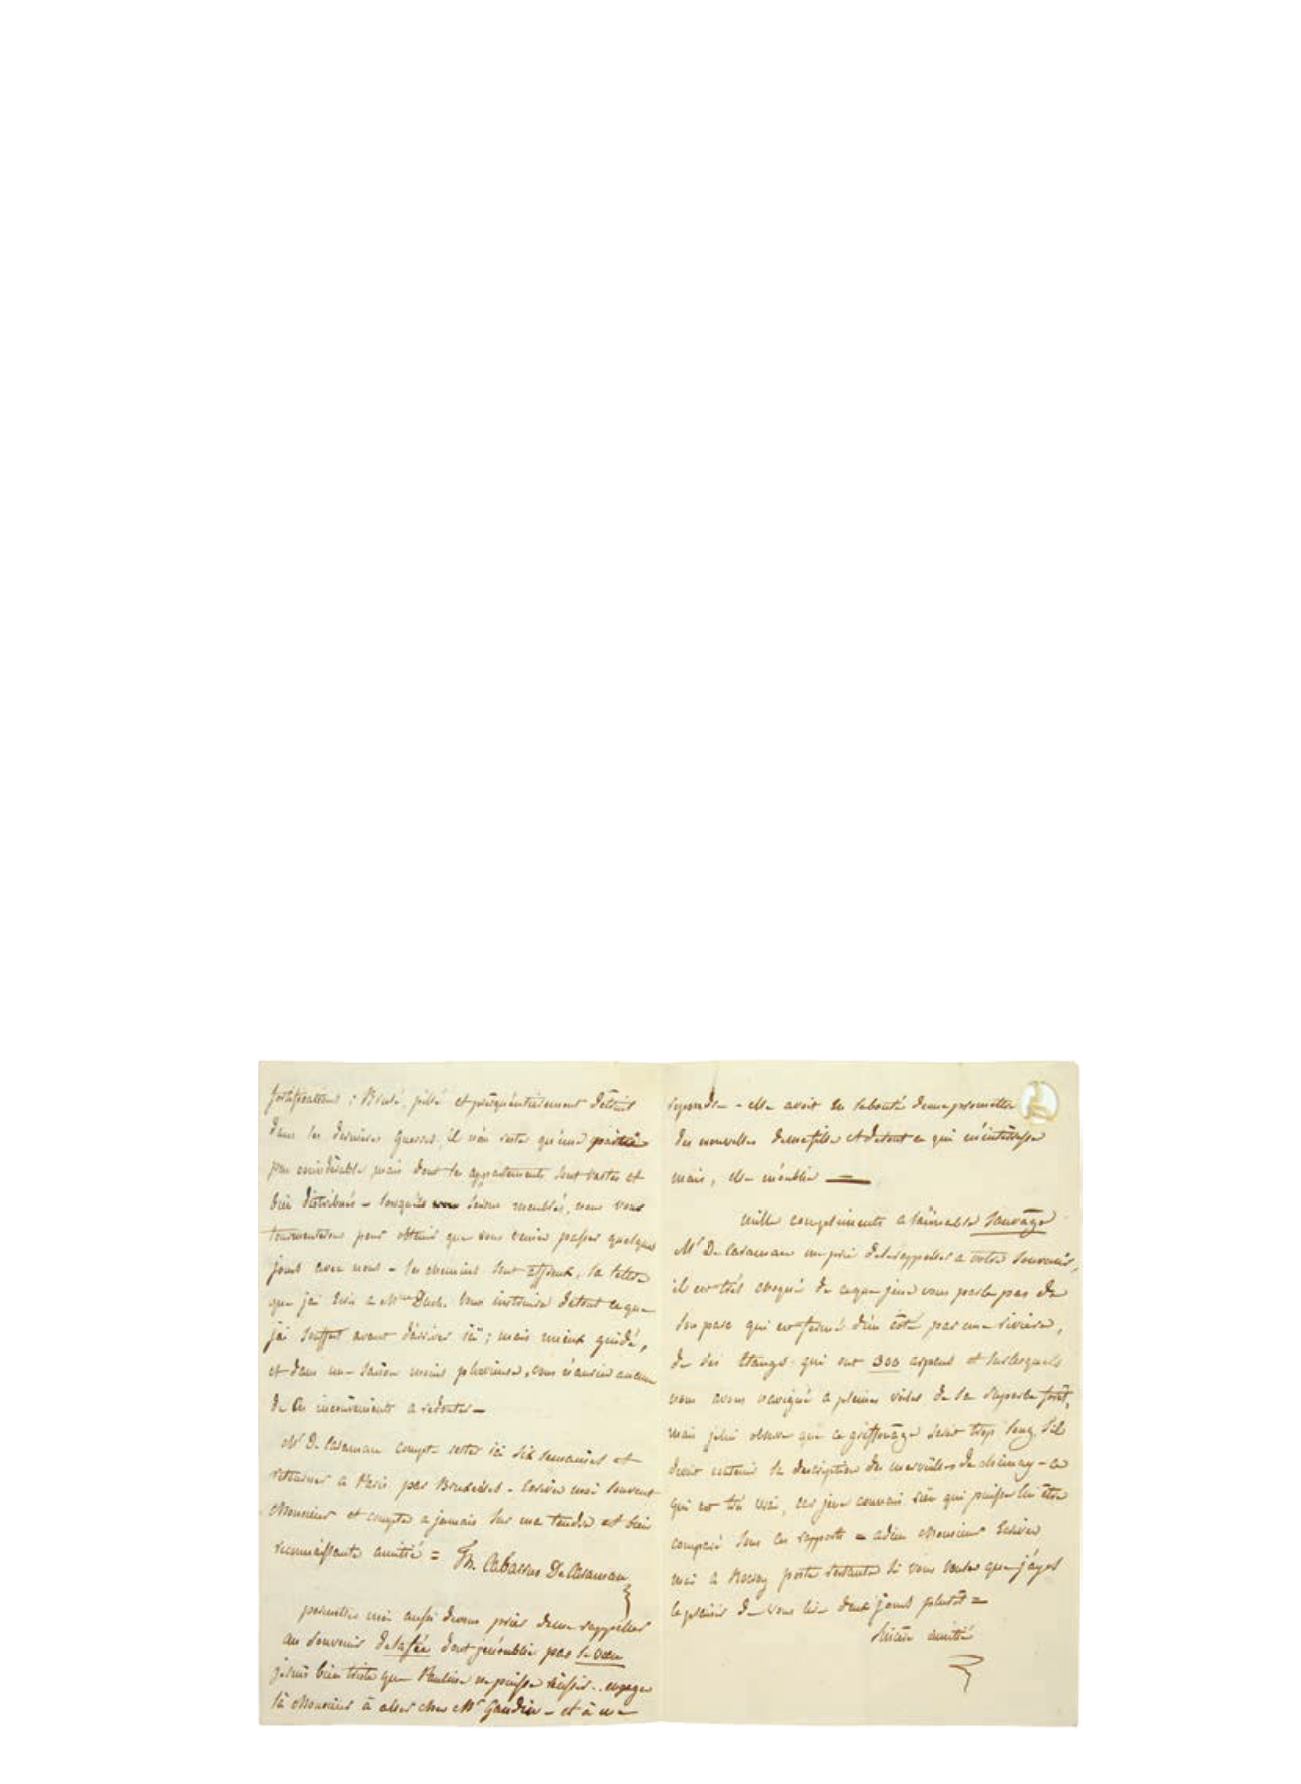 fortifications : Brulé, pillé et presqu'entierement détruit
dans les dernieres guerres, il n'en reste qu'une partie
peu considérable mais dont les appartements sont vastes et
bien distribués - lorsqu'ils seront meublés, nous vous
tourmenterons pour obtenir que vous veniez passer quelques
jours avec nous - les chemins sont affreux, la lettre
que j'ai écrit a Mme vous instruira de tout ce que
j'ai souffert avant d'arriver ici ; mais mieux guidé,
et dans une saison moins pluvieuse, vous n'auriez aucun
de ces inconvenients a redouter -
Mr De Caraman compte rester ici six semaines et
retourner a Paris par Bruxelles - Ecrivez moi souvent
Monsieur et comptez a jamais sur ma tendre et bien
reconnaissante amitié = Th. Cabarrus De Caraman
permettez moi aussi de vous prier de me rappeller
au souvenir de la fée dont je n'oublie pas le
je suis bien triste que Pauline ne puisse réussir .. engagez
la Monsieur à aller chez Mr Gaudin - et à me
repondre - elle avoit eu la bonté de me promettre
des nouvelles de ma fille et de tout ce qui m'intéresse
mais, elle m'oublie —
mille compliments a l'aimable Sauvage
Mr De Caraman me prie de le rappeller a votre souvenir,
il est très choqué de ce que je ne vous parle pas de
son parc qui est fermé d'un côté par une riviere,
de ses Etangs qui ont 300 arpens et sur lesquels
nous avons navigué a pleines voiles de sa superbe forêt,
mais je lui observe que ce griffonage seroit trop long s'il
devoit contenir la description des merveilles de chimay - ce
qui est très vrai, car je ne connais rien qui puisse lui être
comparé sous ces rapports = adieu Monsieur Ecrivez
moi a Rocroy poste restante si vous voulez que j'aye
le plaisir de vous lire deux jours plutot =
amitié